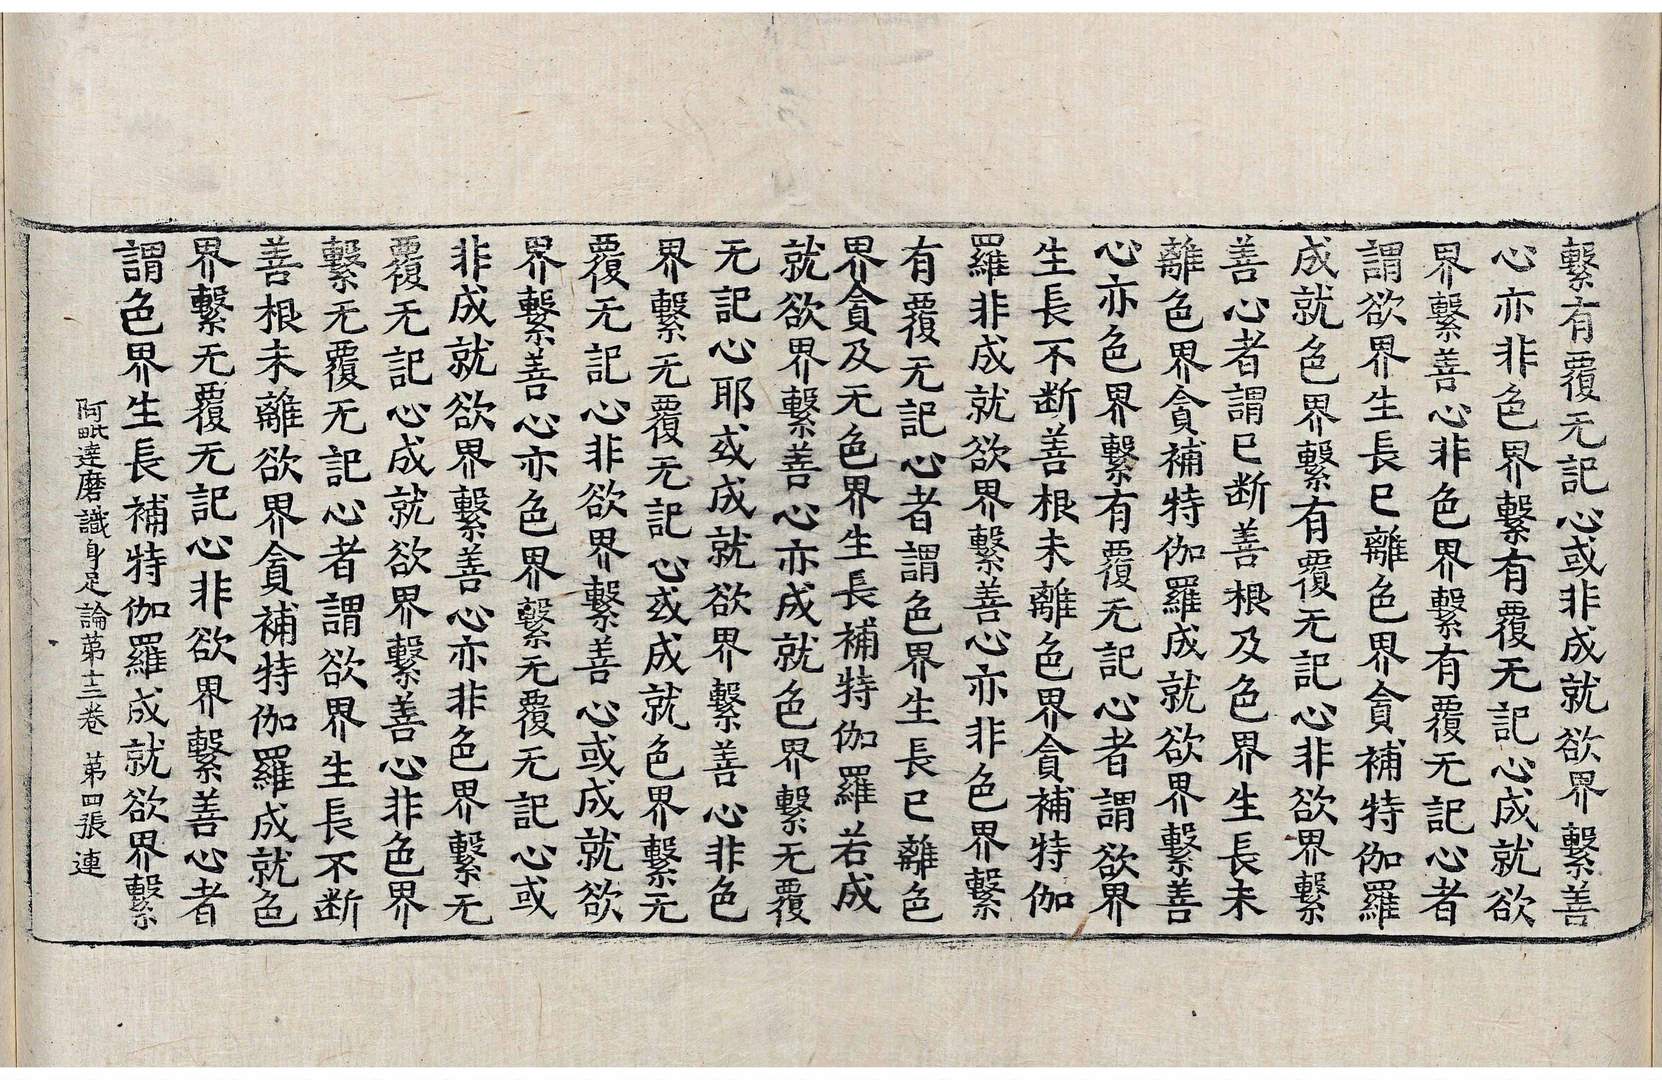 繫有覆无記心或非成就欲界繫善
心亦非色界繫有覆无記心成就欲
界繫善心非色界繫有覆无記心者
謂欲界生長已離色界貪補特伽羅
成就色界繫有覆无記心非欲界繫
善心者謂已断善根及色界生長未
離色界貪補特伽羅成就欲界繫善
心亦色界繫有覆无記心者謂欲界
生長不断善根未離色界貪補特伽
羅非成就欲界繫善心亦非色界繫
有覆无記心者謂色界生長已離色
界貪及无色界生長補特伽羅若成
就欲界繫善心亦成就色界繫无覆
无記心耶或成就欲界繫善心非色
界繫无覆无記心或成就色界繫无
覆无記心非欲界繫善心或成就欲
界繫善心亦色界繫无覆无記心或
非成就欲界繫善心亦非色界繫无
覆无記心成就欲界繫善心非色界
繫无覆无記心者謂欲界生長不断
善根未離欲界貪補特伽羅成就色
界繫无覆无記心非欲界繫善心者
謂色界生長補特伽羅成就欲界繫
阿毗達磨識身足論苐十三卷 苐四張 連